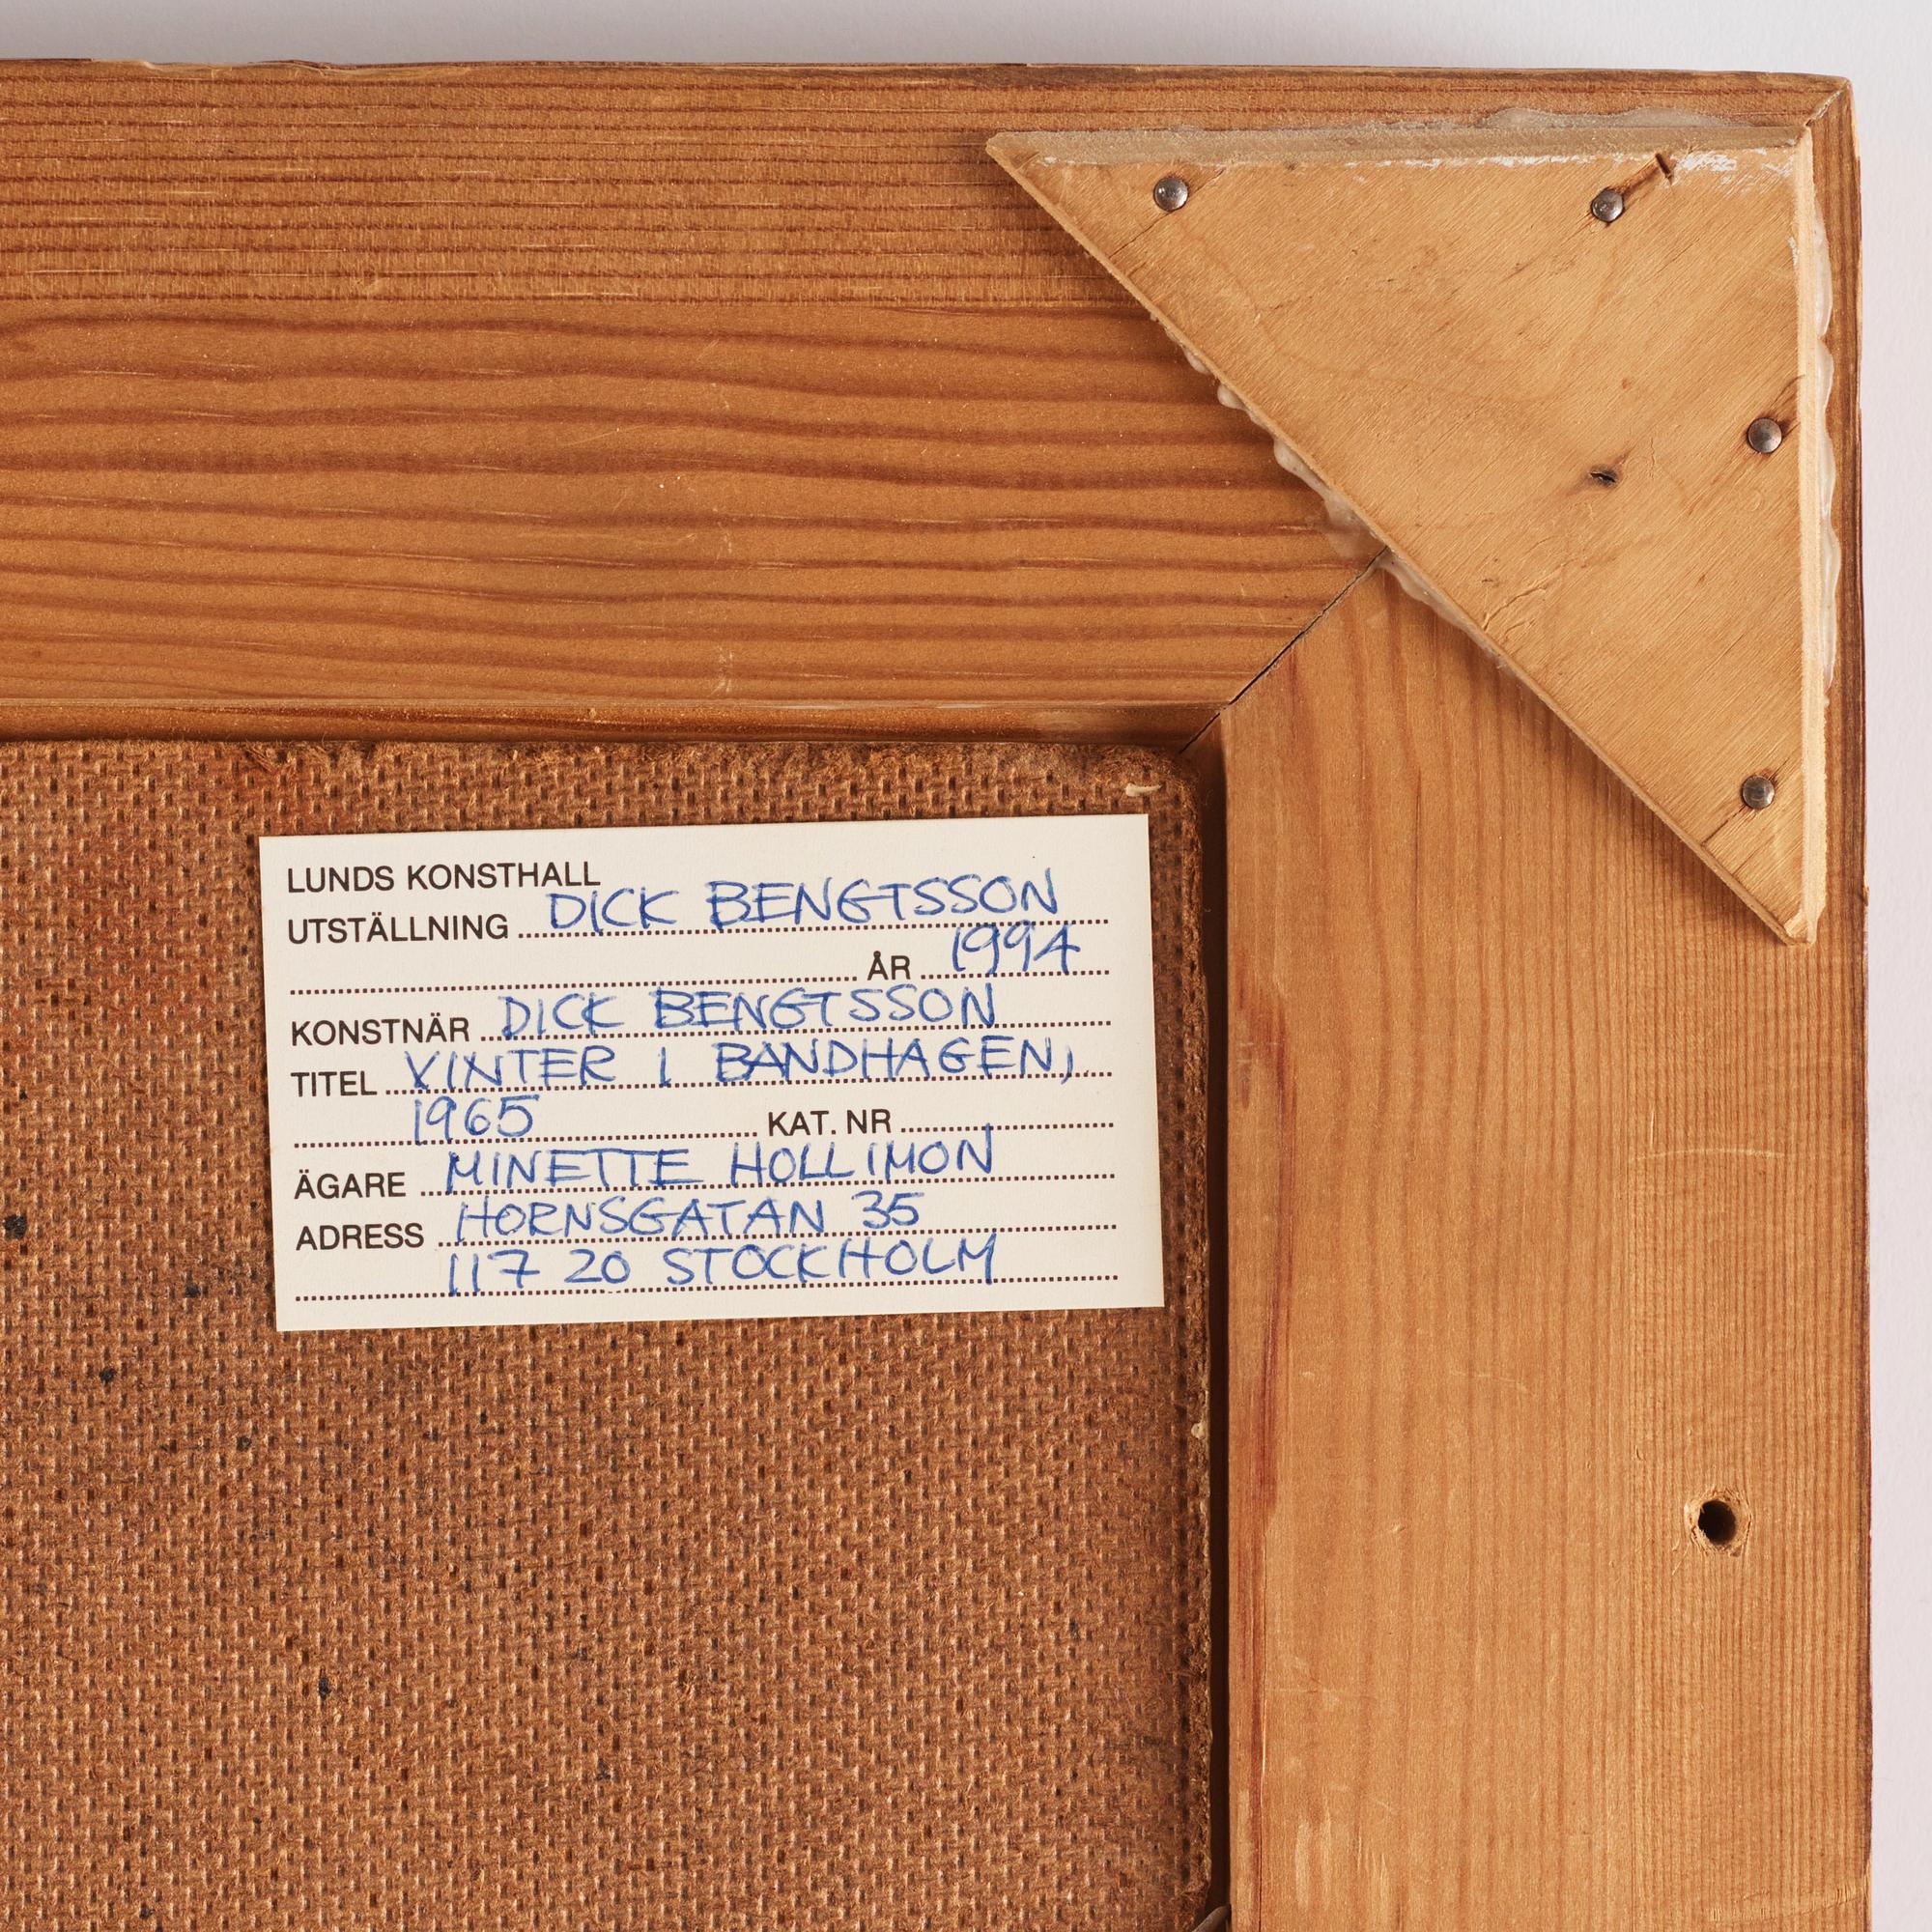 LUNDS KONSTHALL
UTSTÄLLNING DICK BENGTSSON
ÅR 1994
KONSTNÄR DICK BENGTSSON
TITEL VINTER I BANDHAGEN,
1965 KAT. NR
ÄGARE MINETTE HOLLIMON
ADRESS HORNSGATAN 35
117 20 STOCKHOLM